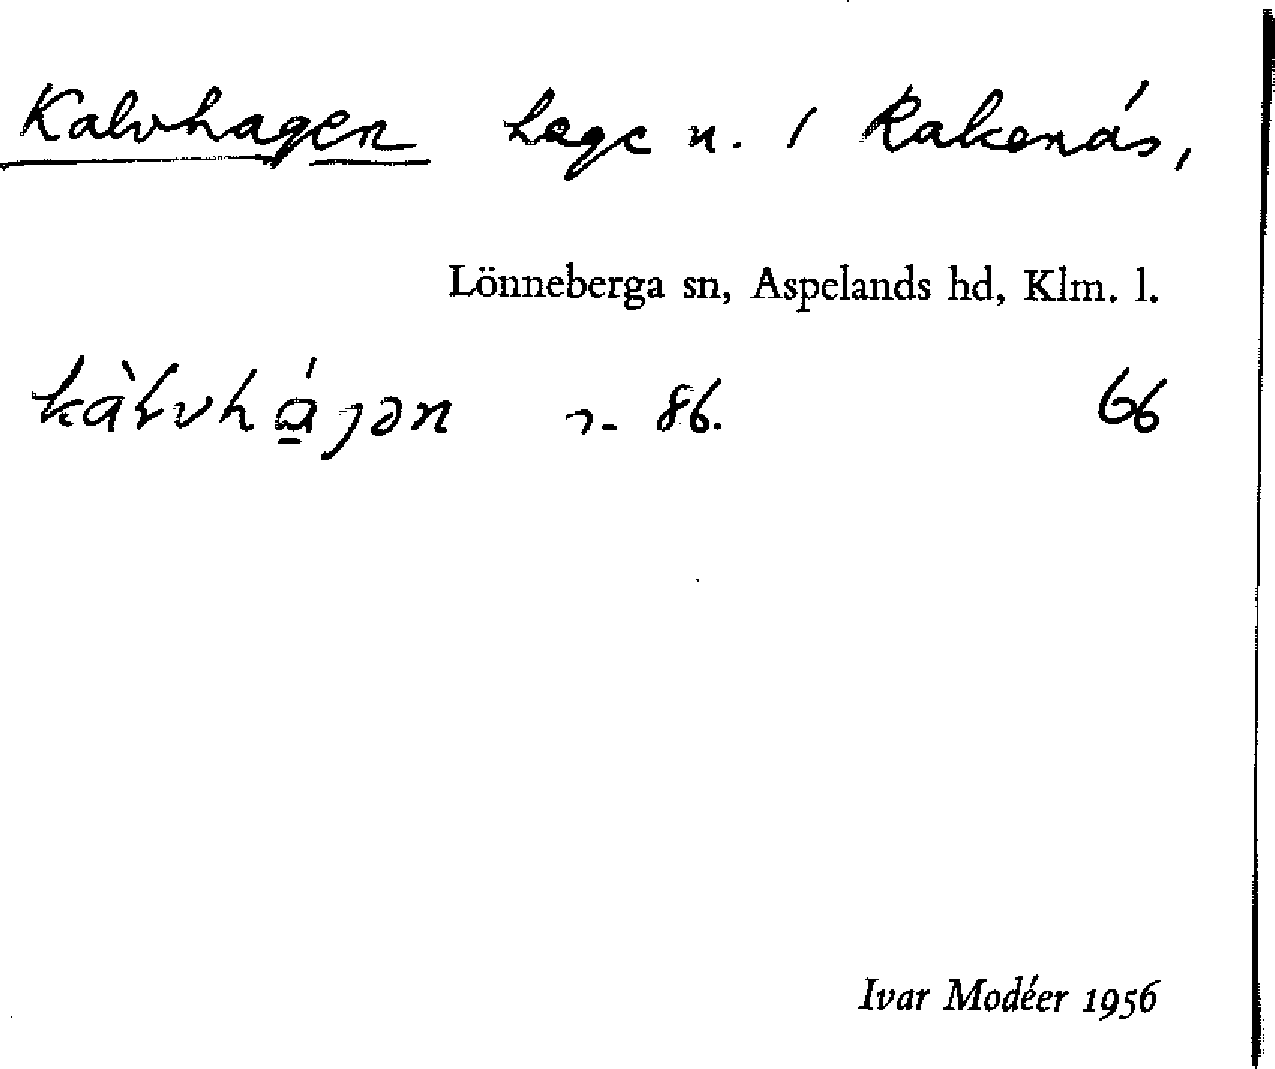 Kalvhagen hage n. i Rakenäs,
Lönneberga sn, Aspelands hd, Klm. l.
kàlvhá̱jən 86. 66
Ivar Modéer 1956